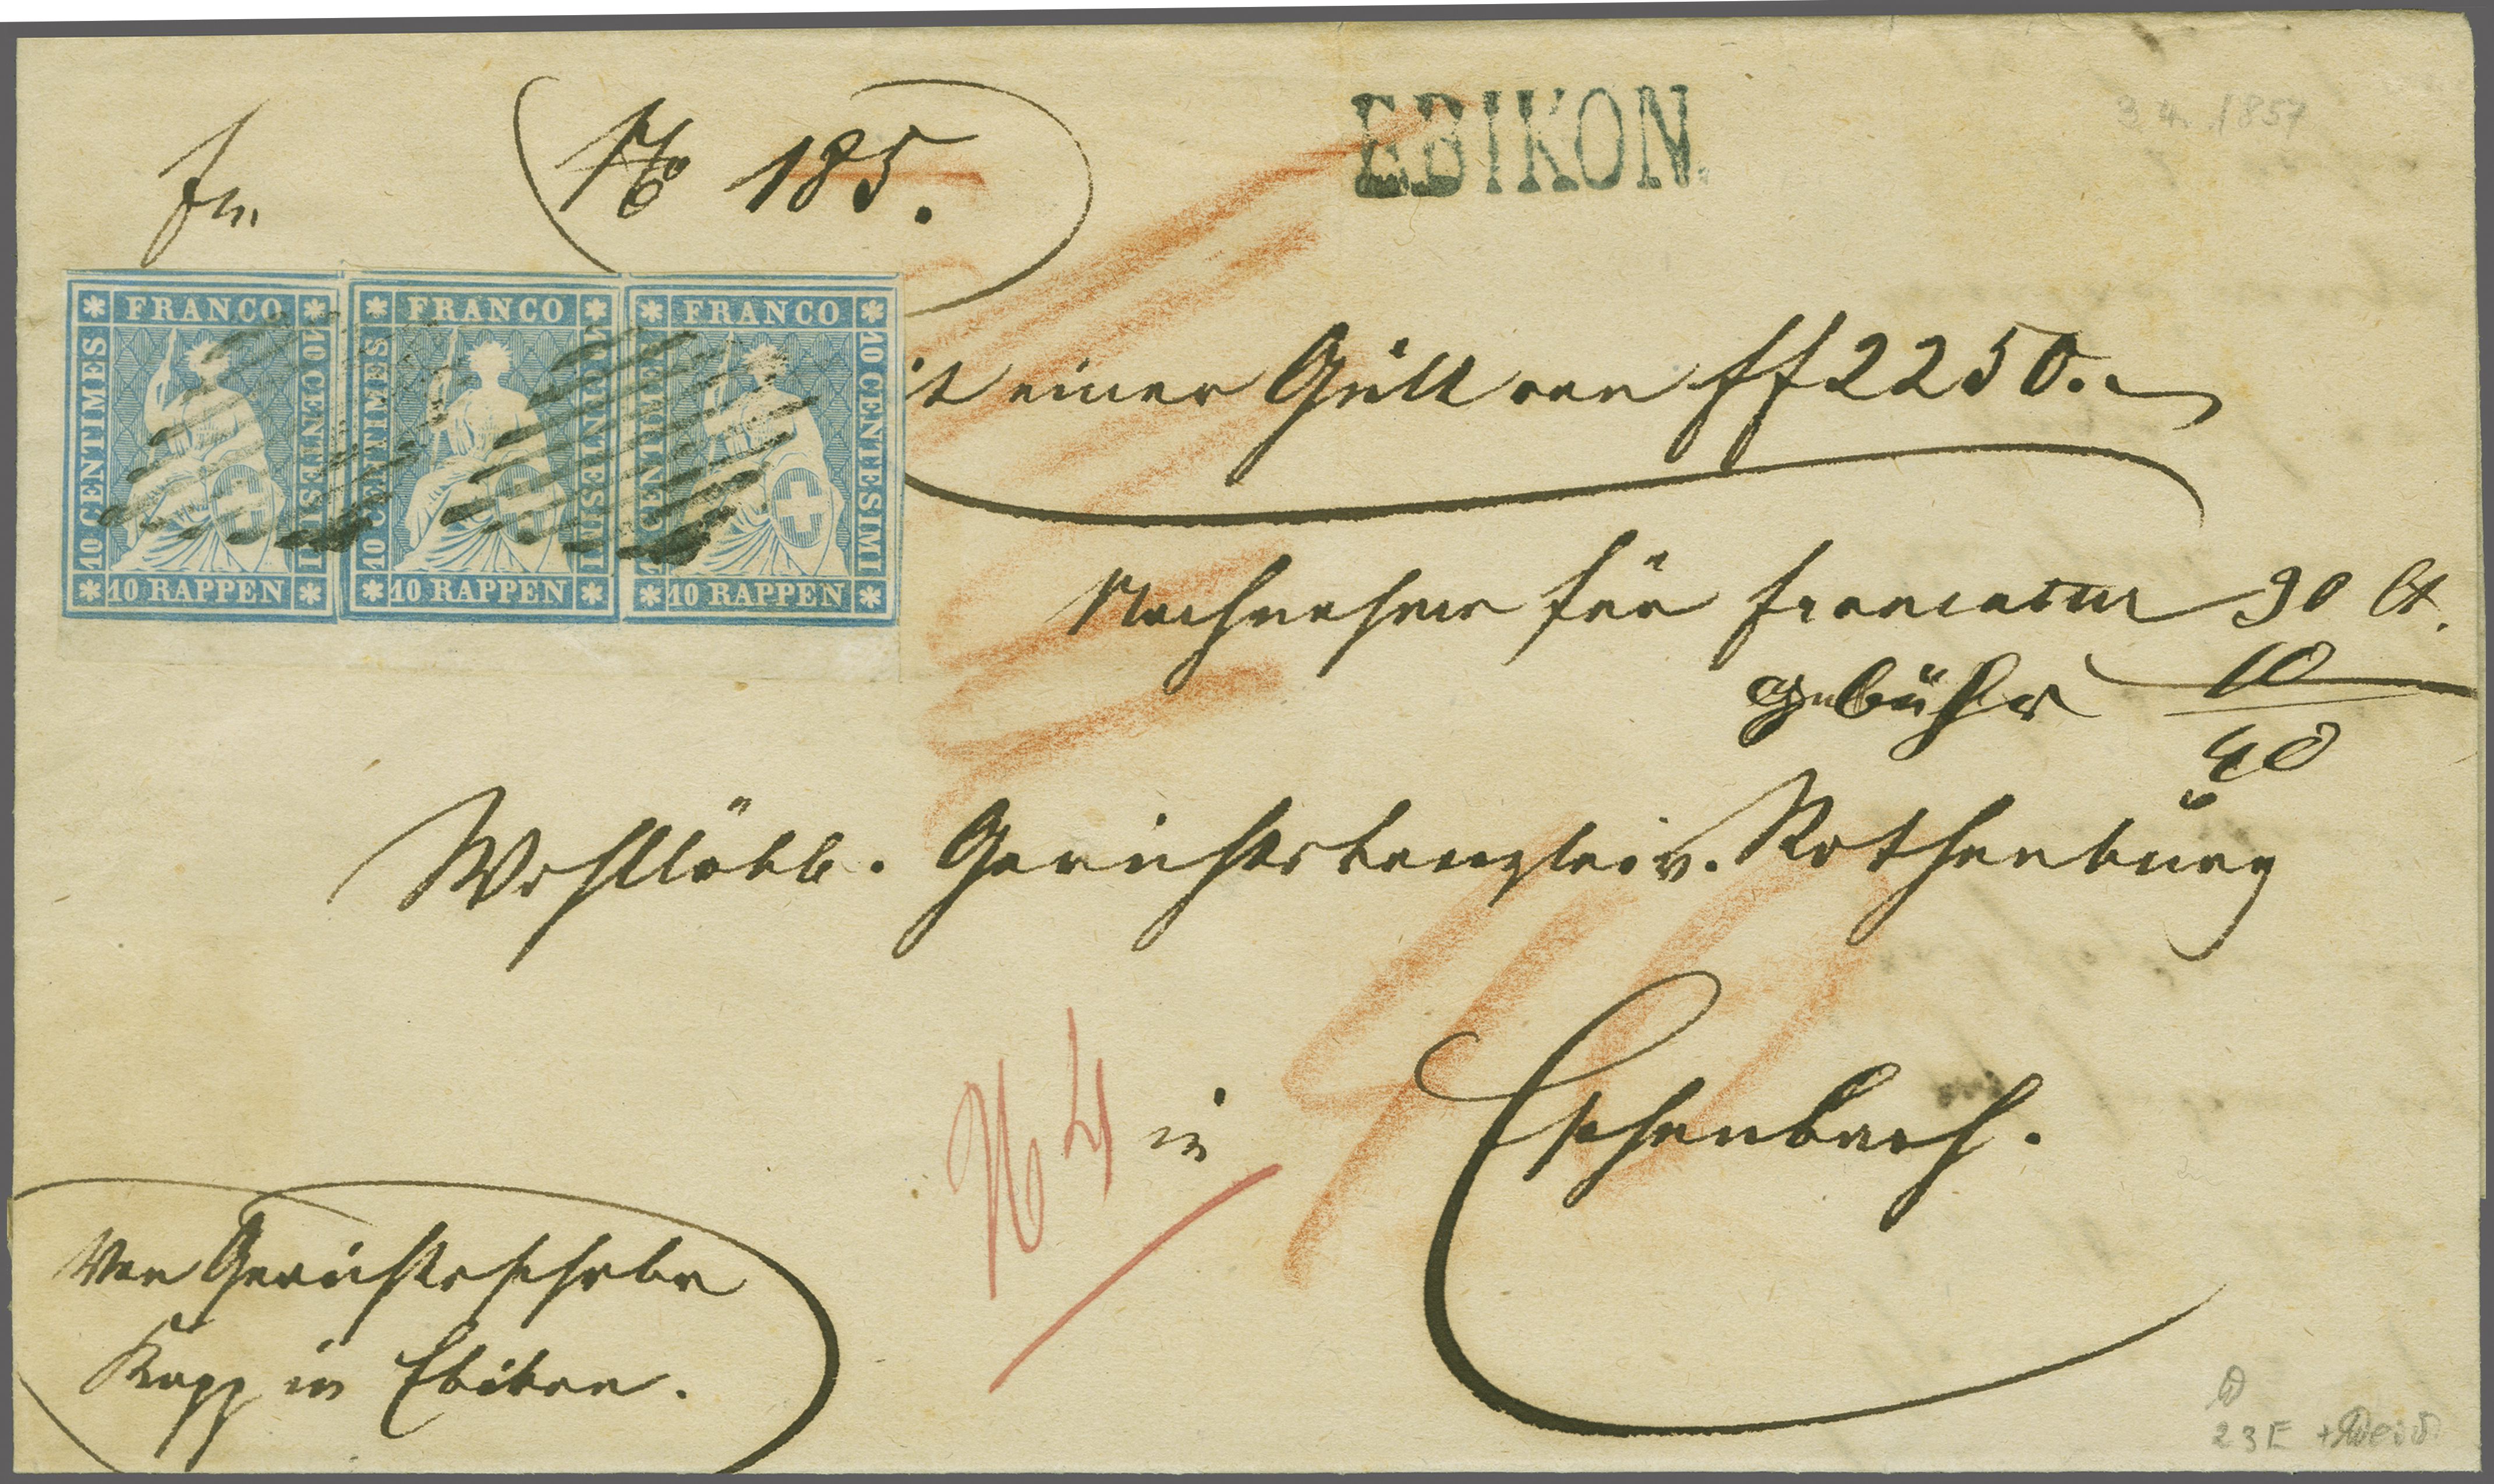 fr.
No 185.
EBIKON.
3 4. 1857
FRANCO FRANCO FRANCO
10 CENTIMES 10 CENTESIMI 10 CENTIMES 10 CENTESIMI 10 CENTIMES 10 CENTESIMI
10 RAPPEN 10 RAPPEN 10 RAPPEN
it einer Gült von ff 2250.
Nachnahme für Francatur 30 Ct.
Gebühr 10
40
Wohllöbl. Gerichtskanzlei v. Rothenburg
40
No 4
in Eschenbach.
Von Gerichtsschrbr
Kopp in Ebikon.
23E